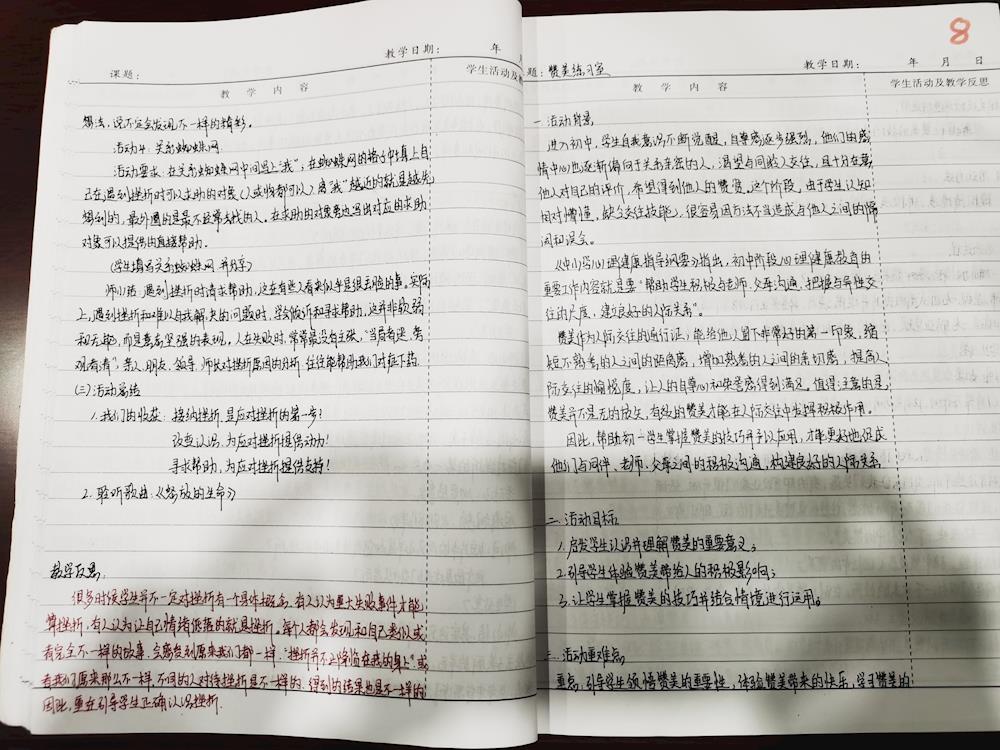 教学日期： 年 月
课题：
教 学 内 容
学生活动及教
想法，说不定会发现不一样的精彩。
活动4：关系蜘蛛网
活动要求：在关系蜘蛛网中间写上"我"，在蜘蛛网的格子中填上自
己在遇到挫折时可以求助的对象（人或物都可以）离"我"越近的就是越先
想到的，最外圈的是最不经常去找的人，在求助的对象旁边写出对应的求助
对象可以提供的直接帮助。
（学生填写关系蜘蛛网，并分享）
师小结：遇到挫折时请求帮助，这在有些人看来似乎是很丢脸的事，实际
上，遇到挫折和难以自我解决的问题时，学会倾诉和寻求帮助，这并非软弱
和无能，而是意志坚强的表现。人在失败时，常常最没有主张，"当局者迷，旁
观者清"，亲人、朋友、领导、师长对挫折原因的分析，往往能帮助我们对症下药。
（三）活动总结
1. 我们的收获：接纳挫折，是应对挫折的第一步！
改变认识，为应对挫折提供动力！
寻求帮助，为应对挫折提供支持！
2. 聆听歌曲：《怒放的生命》
教学反思：
很多时候学生并不一定对挫折有一个具体概念，有人认为重大失败事件才能
算挫折，有人认为让自己情绪低落的就是挫折。每个人都会发现和自己类似或
者完全不一样的故事，会感受到原来我们都一样："挫折并不止降临在我的身上"或
者我们原来那么不一样，不同的人对待挫折是不一样的，得到的结果也是不一样的
因此，重在引导学生正确认识挫折。
8
题：赞美练习室
教学日期： 年 月 日
教 学 内 容
学生活动及教学反思
一、活动背景
进入初中，学生自我意识不断觉醒，自尊感逐步强烈，他们的感
情中心也逐渐偏向于关系亲密的人，渴望与同龄人交往，且十分在意
他人对自己的评价，希望得到他人的赞赏。这个阶段，由于学生认知
相对懵懂，缺乏交往技能，很容易因方法不当造成与他人之间的隔
阂和误会。
《中小学心理健康指导纲要》指出，初中阶段心理健康教育的
重要工作内容就是要"帮助学生积极与老师、父母沟通，把握与异性交
往的尺度，建良好的人际关系"。
赞美作为人际交往的通行证，能给他人留下非常好的第一印象，缩
短不熟悉的人之间的距离感，增加熟悉的人之间的亲切感，提高人
际交往的愉悦度，让人的自尊心和荣誉感得到满足。值得注意的是，
赞美并不是无的放矢，有效的赞美才能在人际交往中发挥积极作用。
因此，帮助初一学生掌握赞美的技巧并予以应用，才能更好地促成
他们与同伴、老师、父母之间的积极沟通，构建良好的人际关系
二、活动目标
1. 启发学生认识并理解赞美的重要意义；
2. 引导学生体验赞美带给人的积极影响；
3. 让学生掌握赞美的技巧并结合情境进行运用。
三、活动重难点
重点：引导学生领悟赞美的重要性，体验赞美带来的快乐，学习赞美的